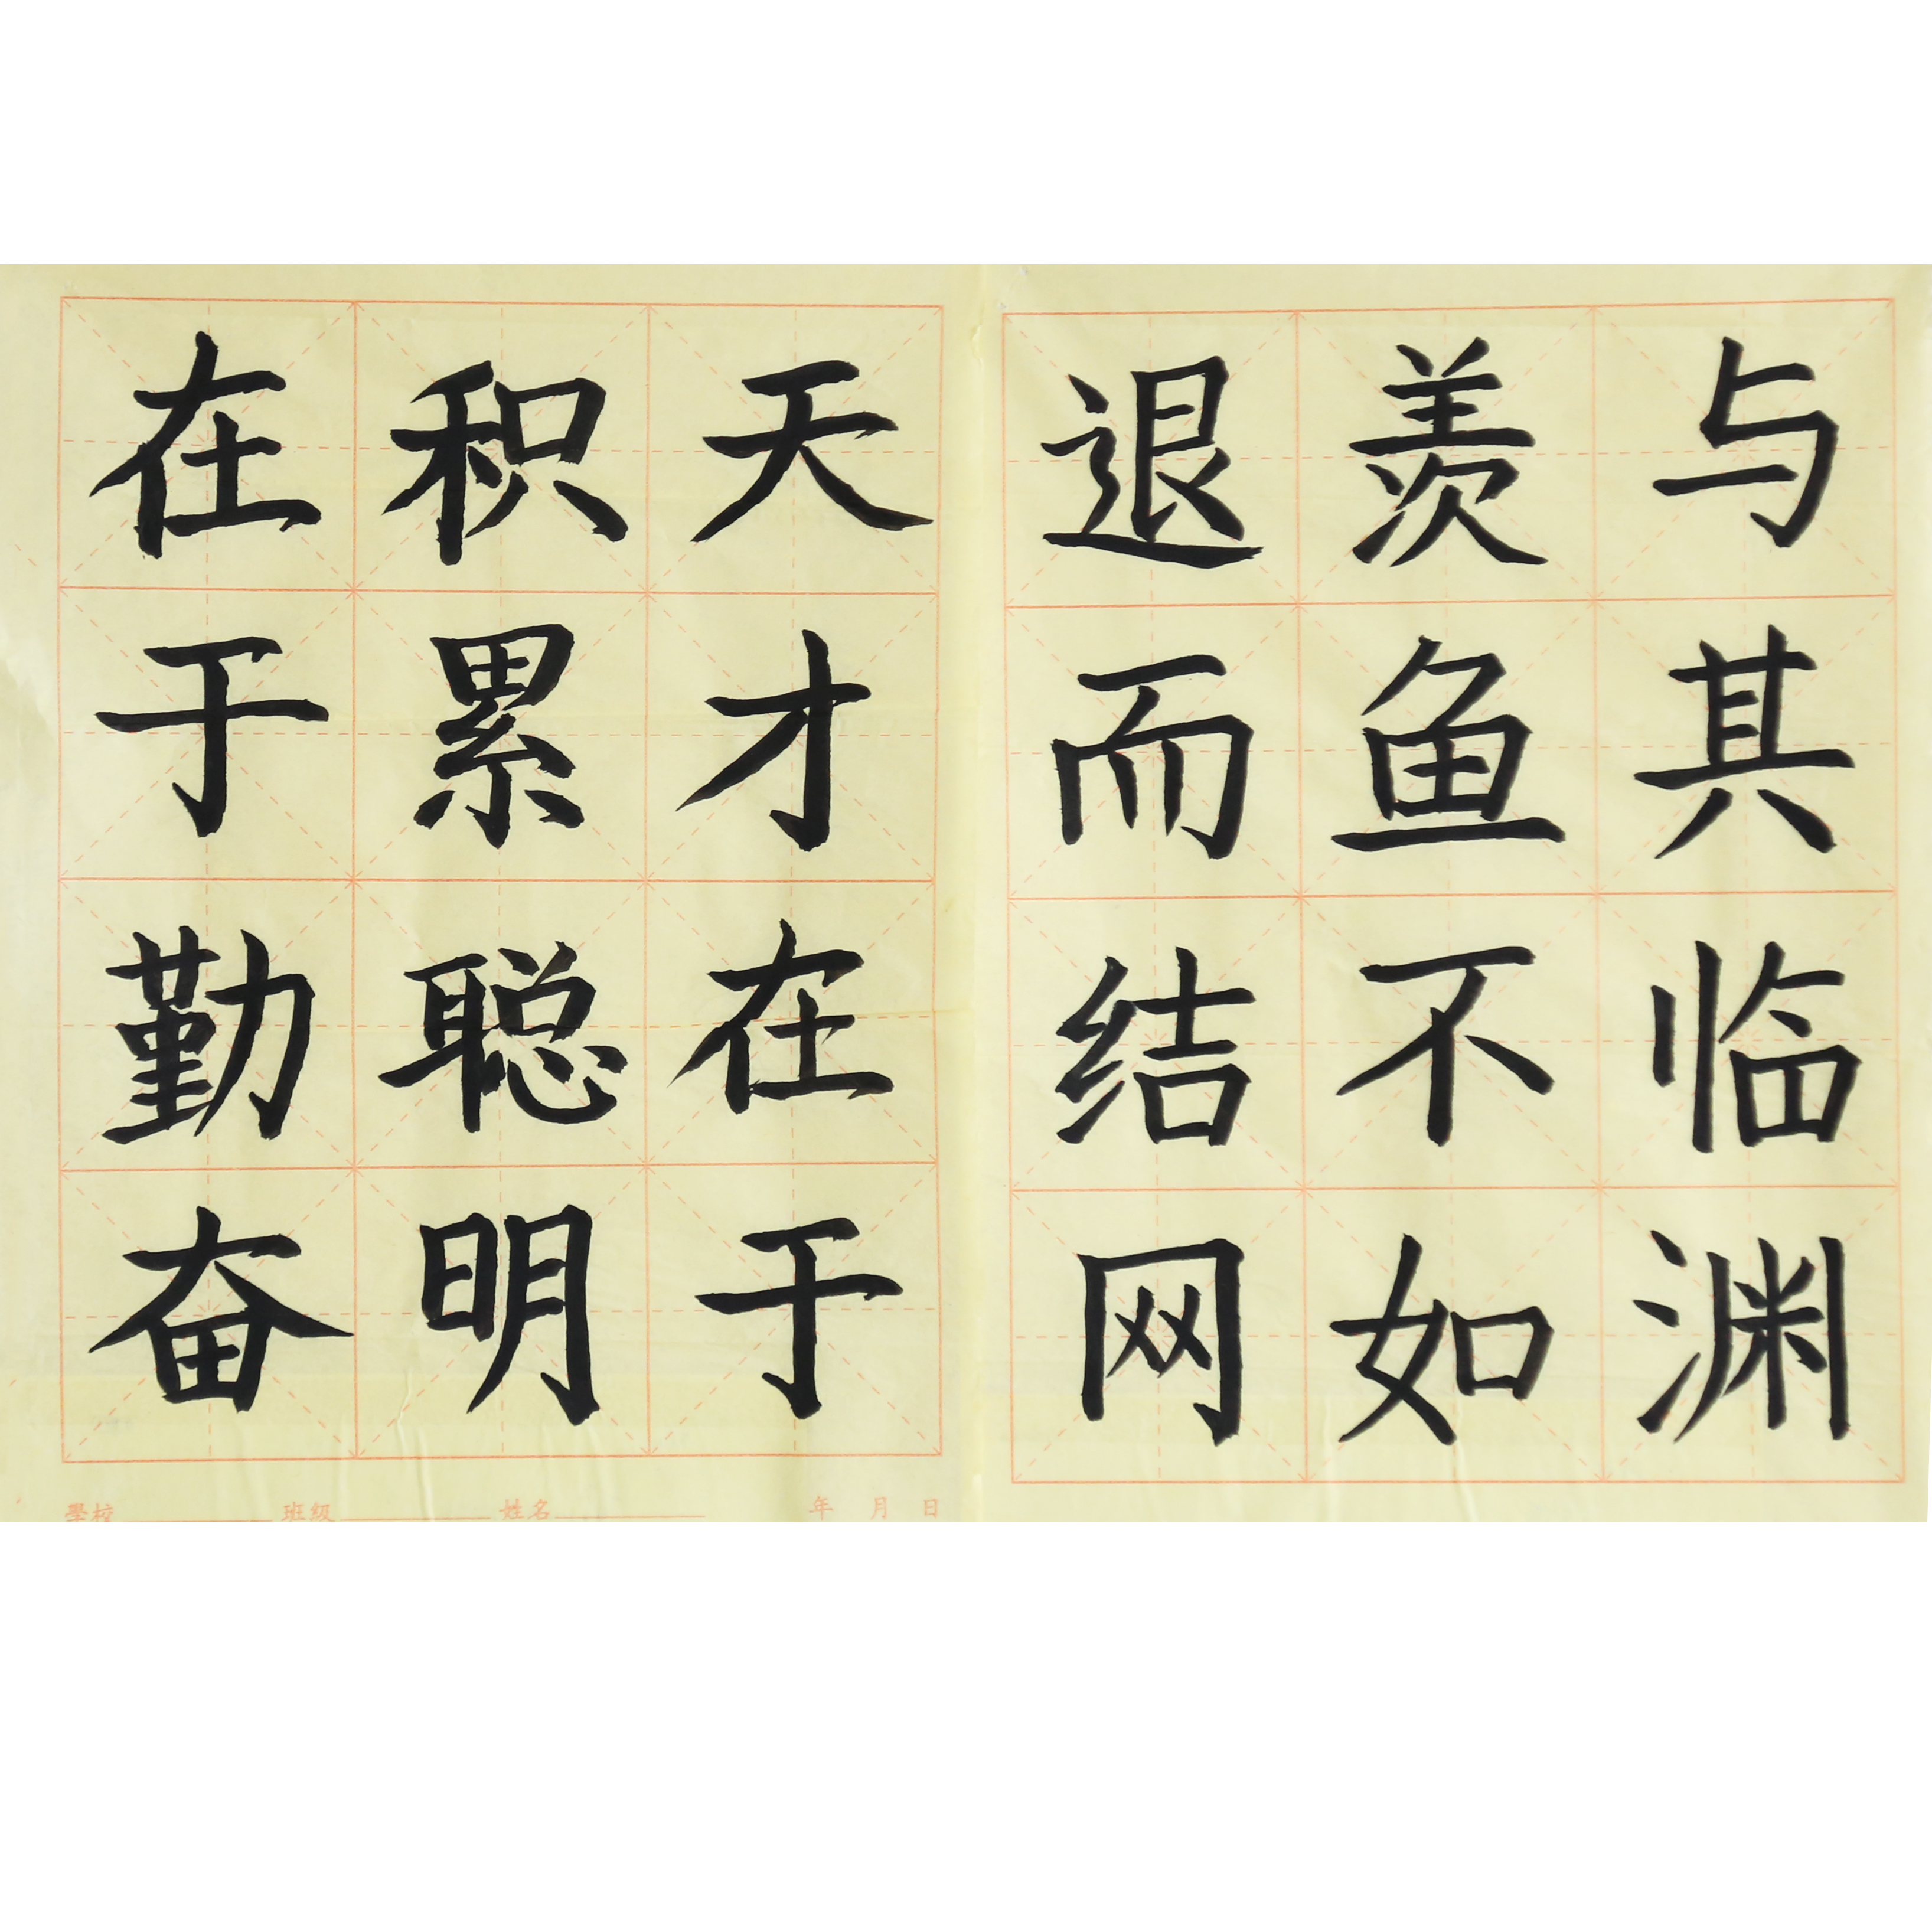 与其临渊
羡鱼不如
退而结网
天才在于
积累聪明
在于勤奋
學校 班级 姓名 年 月 日